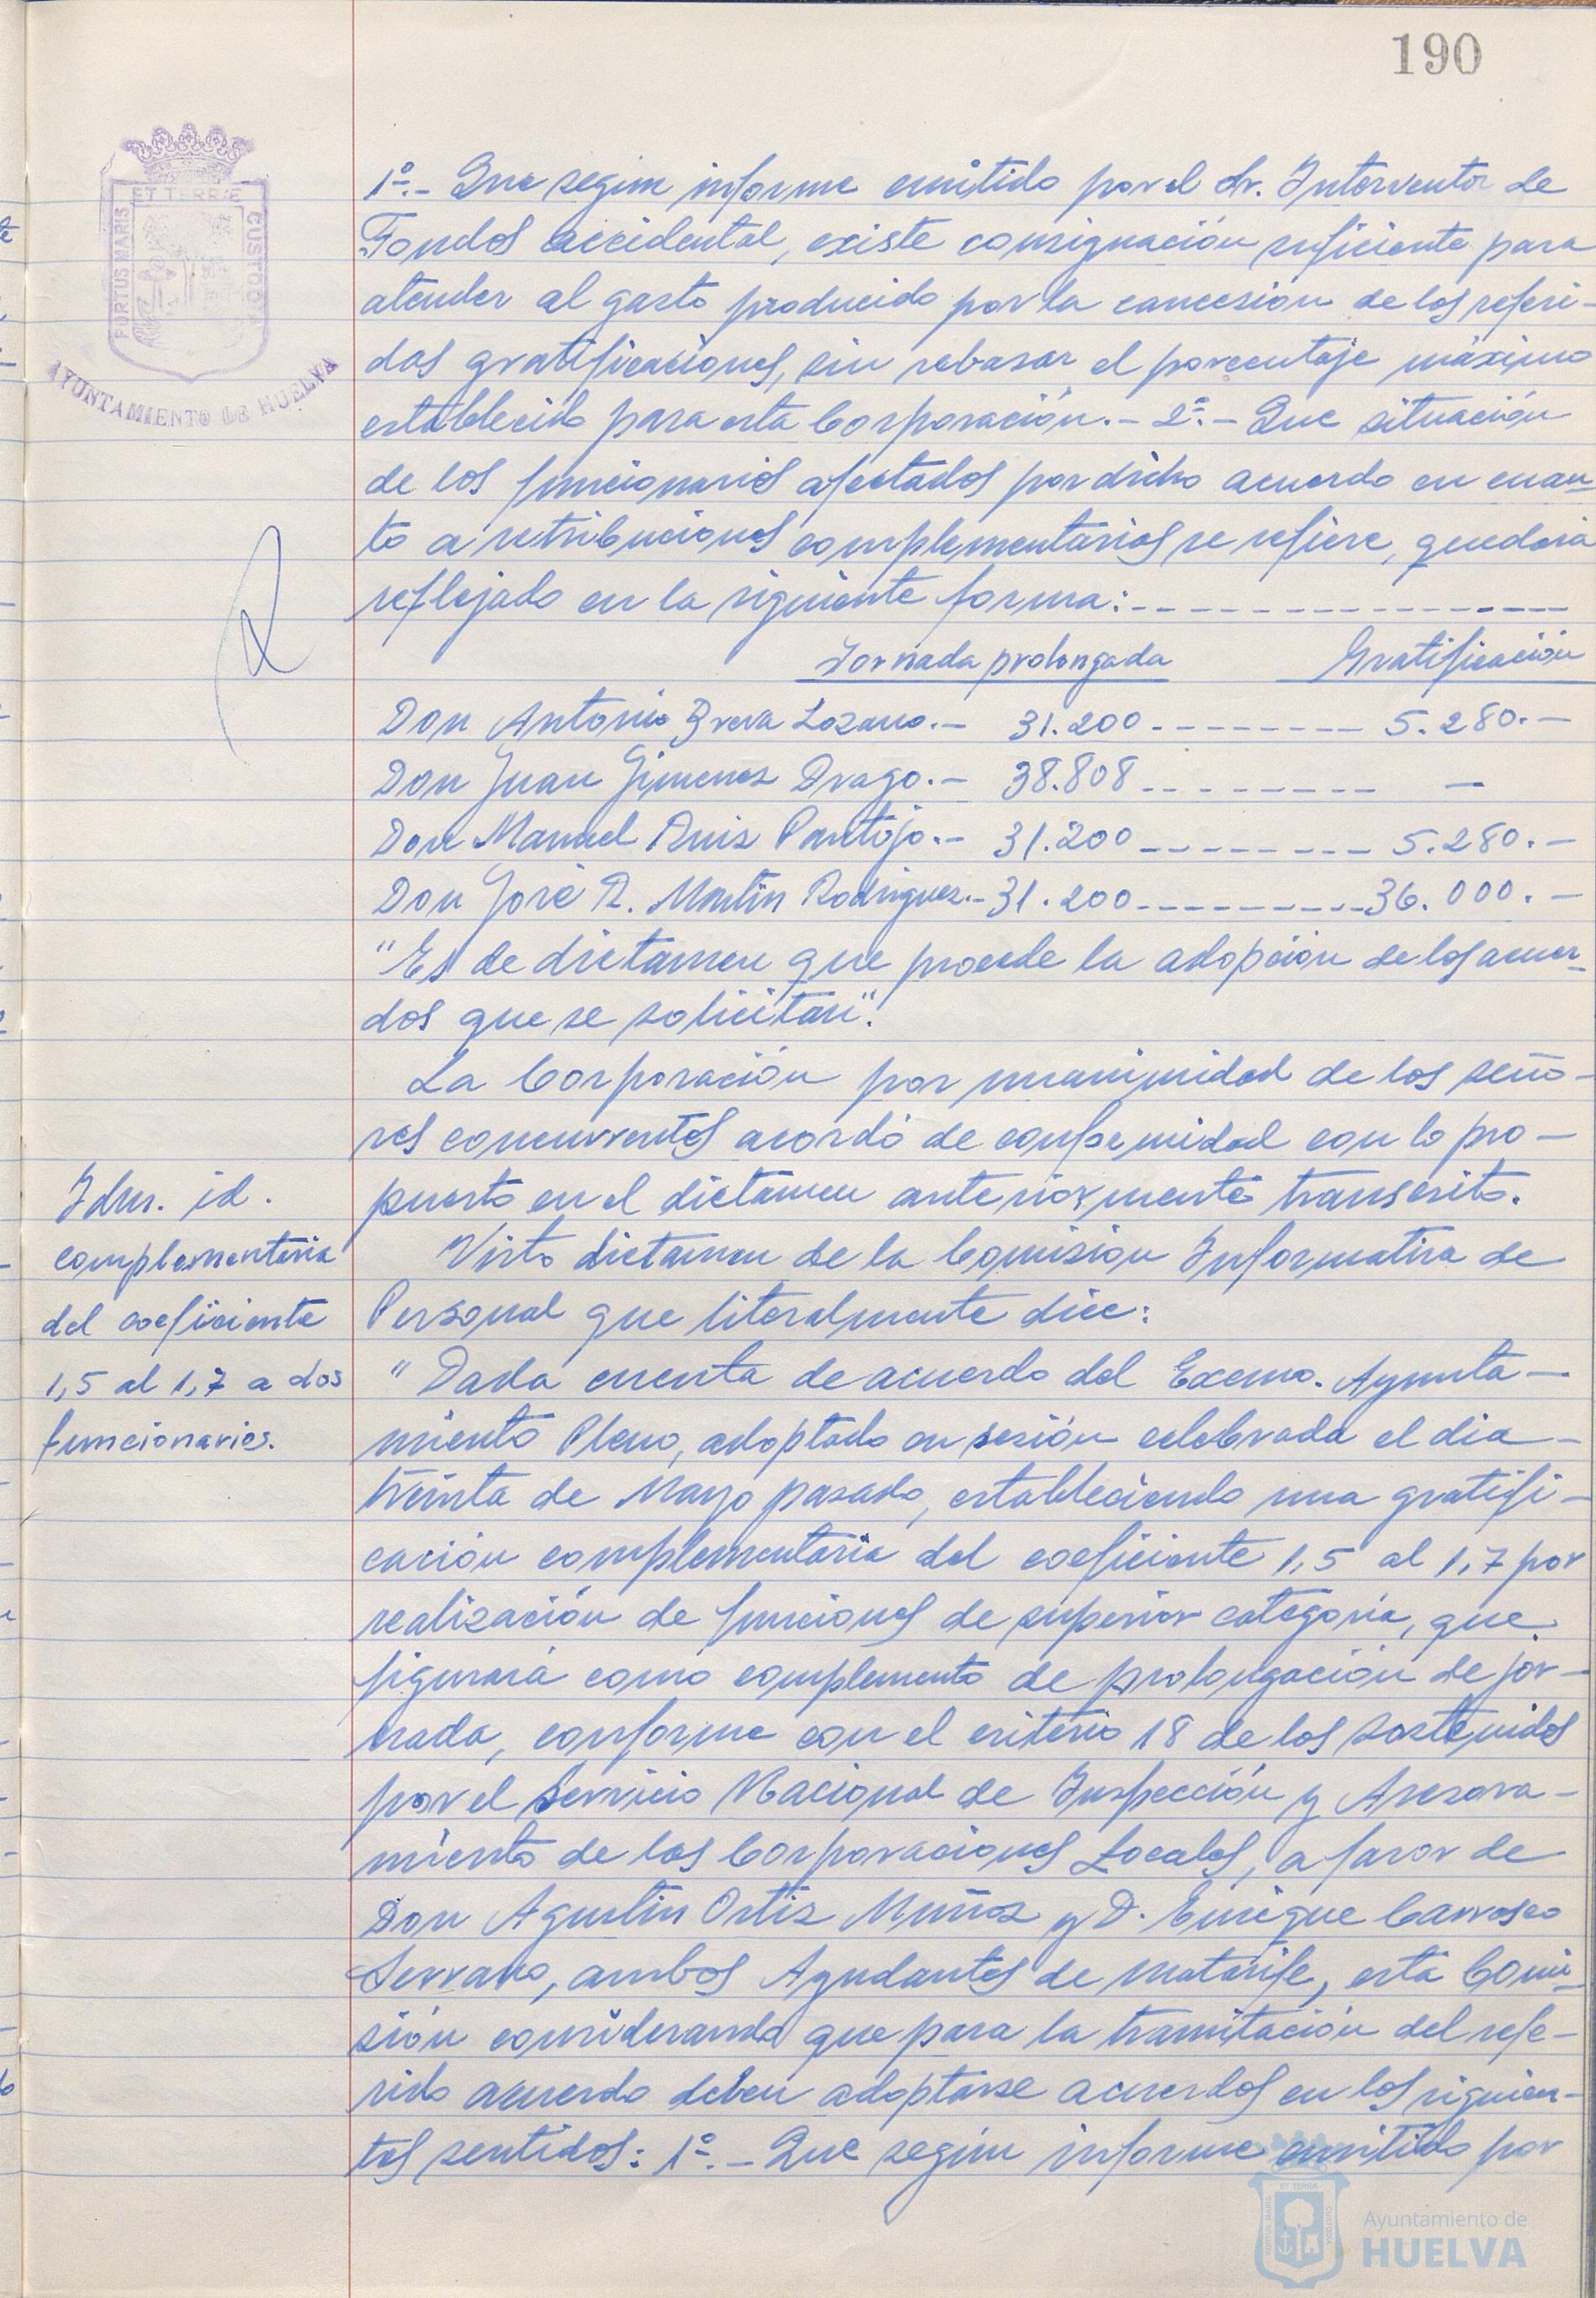 190
ET TERRÆ
PORTUS MARIS
CUSTODIA
AYUNTAMIENTO DE HUELVA
1º.- Que segun informe emitido por el Sr. Interventor de
Fondos accidental, existe consignación suficiente para
atender al gasto producido por la concesion de los referi-
das gratificaciones, sin rebasar el porcentaje máximo
establecido para esta Corporación.- 2º.- Que situación
de los funcionarios afectados por dicho acuerdo en cuan-
to a retribuciones complementarias se refiere, quedaria
reflejado en la siguiente forma:
Jornada prolongada Gratificación
Don Antonio Breva Lozano.- 31.200 5.280.-
Don Juan Gimenez Drago.- 38.808 -
Don Manuel Ruiz Pantoja.- 31.200 5.280.-
Don José R. Martin Rodriguez.- 31.200 36.000.-
"Es de dictamen que procede la adopción de los acuer-
dos que se solicitan".
La Corporación por unanimidad de los seño-
res concurrentes acordó de conformidad con lo pro-
puesto en el dictamen anteriormente transcrito.
Idm. id.
complementaria
del coeficiente
1,5 al 1,7 a dos
funcionarios.
Visto dictamen de la Comision Informativa de
Personal que literalmente dice:
"Dada cuenta de acuerdo del Excmo. Ayunta-
miento Pleno, adoptado en sesión celebrada el dia
treinta de Mayo pasado, estableciendo una gratifi-
cación complementaria del coeficiente 1,5 al 1,7 por
realización de funciones de superior categoria, que
figurará como complemento de prolongación de jor-
nada, conforme con el criterio 18 de los sostenidos
por el Servicio Nacional de Inspección y Asesora-
miento de las Corporaciones Locales, a favor de
Don Agustin Ortiz Muñoz y D. Enrique Carrasco
Serrano, ambos Ayudantes de matarife, esta Comi-
sión considerando que para la tramitación del refe-
rido acuerdo deben adoptarse acuerdos en los siguien-
tes sentidos: 1º.- Que según informe emitido por
Ayuntamiento de
HUELVA